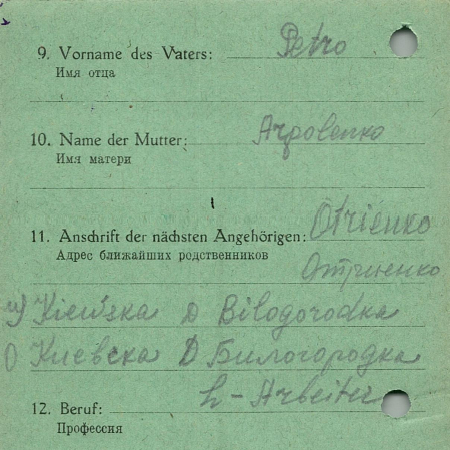 9. Vorname des Vaters: Petro
Имя отца
10. Name der Mutter: Agrovenko
Имя матери
11. Anschrift der nächsten Angehörigen: Otrienko
Адрес ближайших родственников
Отриненко
Kiewska D Bilogorodka
О Киевска Д Билогородка
12. Beruf: L-Arbeiter
Профессия